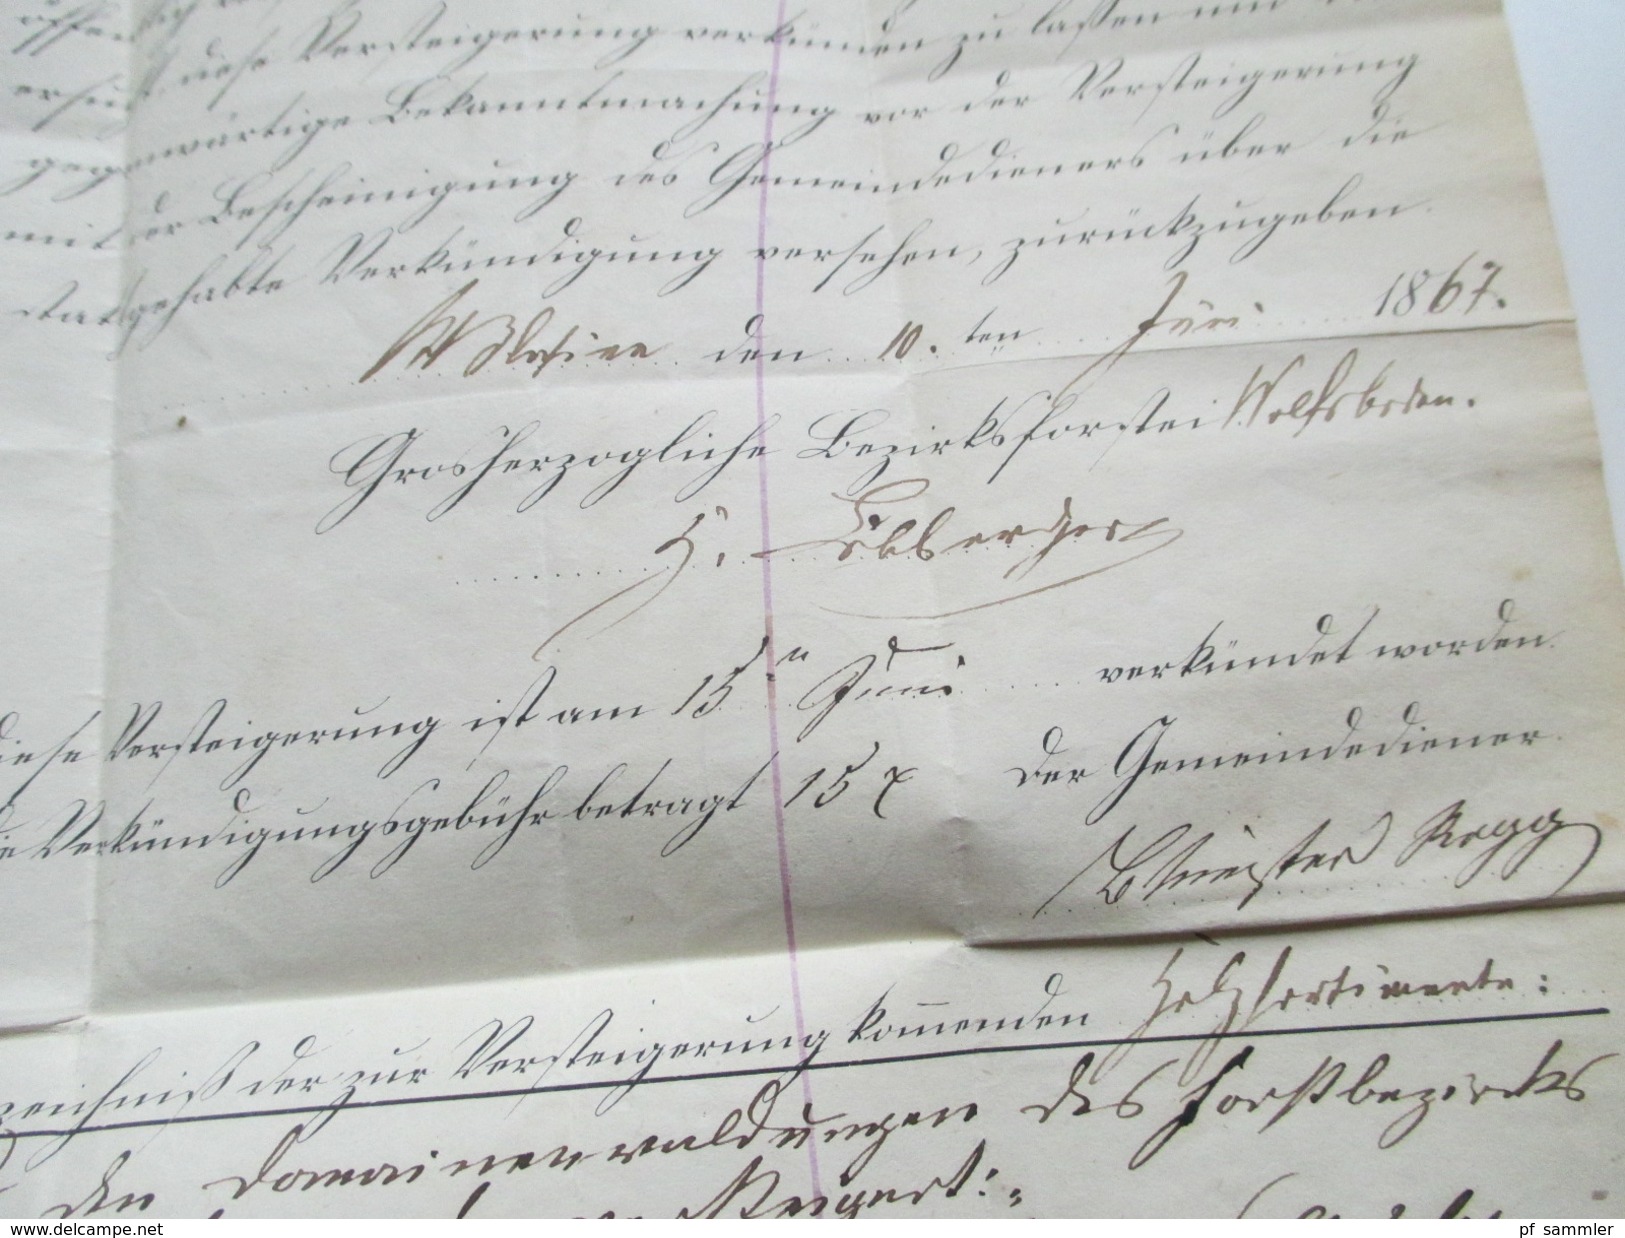 diese Versteigerung verkünden zu lassen und
gegenwärtige Bekanntmachung vor der Versteigerung
mit der Bescheinigung des Gemeindedieners über die
stattgehabte Verkündigung versehen, zurückzugeben.
St Blasien den 10. ten Juni 1867.
Grosherzogliche Bezirksforstei Wolfsboden.
diese Versteigerung ist am 15n Juni verkündet worden.
Verkündigungsgebühr betragt 15 x der Gemeindediener.
Bmeister Rogg
zeichniß der zur Versteigerung kom̅enden Holzsortimente:
den Domainenwaldungen des Forstbezirks
www.delcampe.net
pf_sammler